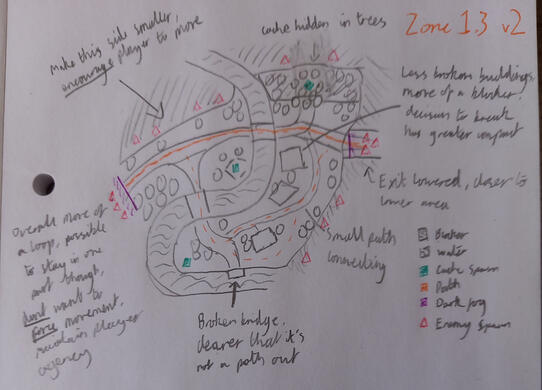 Zone 1.3 v2
cache hidden in trees
make this side smaller,
encourage player to move
Less broken buildings,
more of a blocker,
decision to break
has greater impact
Exit lowered, closer to
lower area
Small path
connecting
Overall more of
a loop, possible
to stay in one
spot though,
dont want to
force movement,
maintain player
agency
Broken bridge,
clearer that it's
not a path out
Blocker
water
Cache Spawn
Path
Dark fog
Enemy Spawn